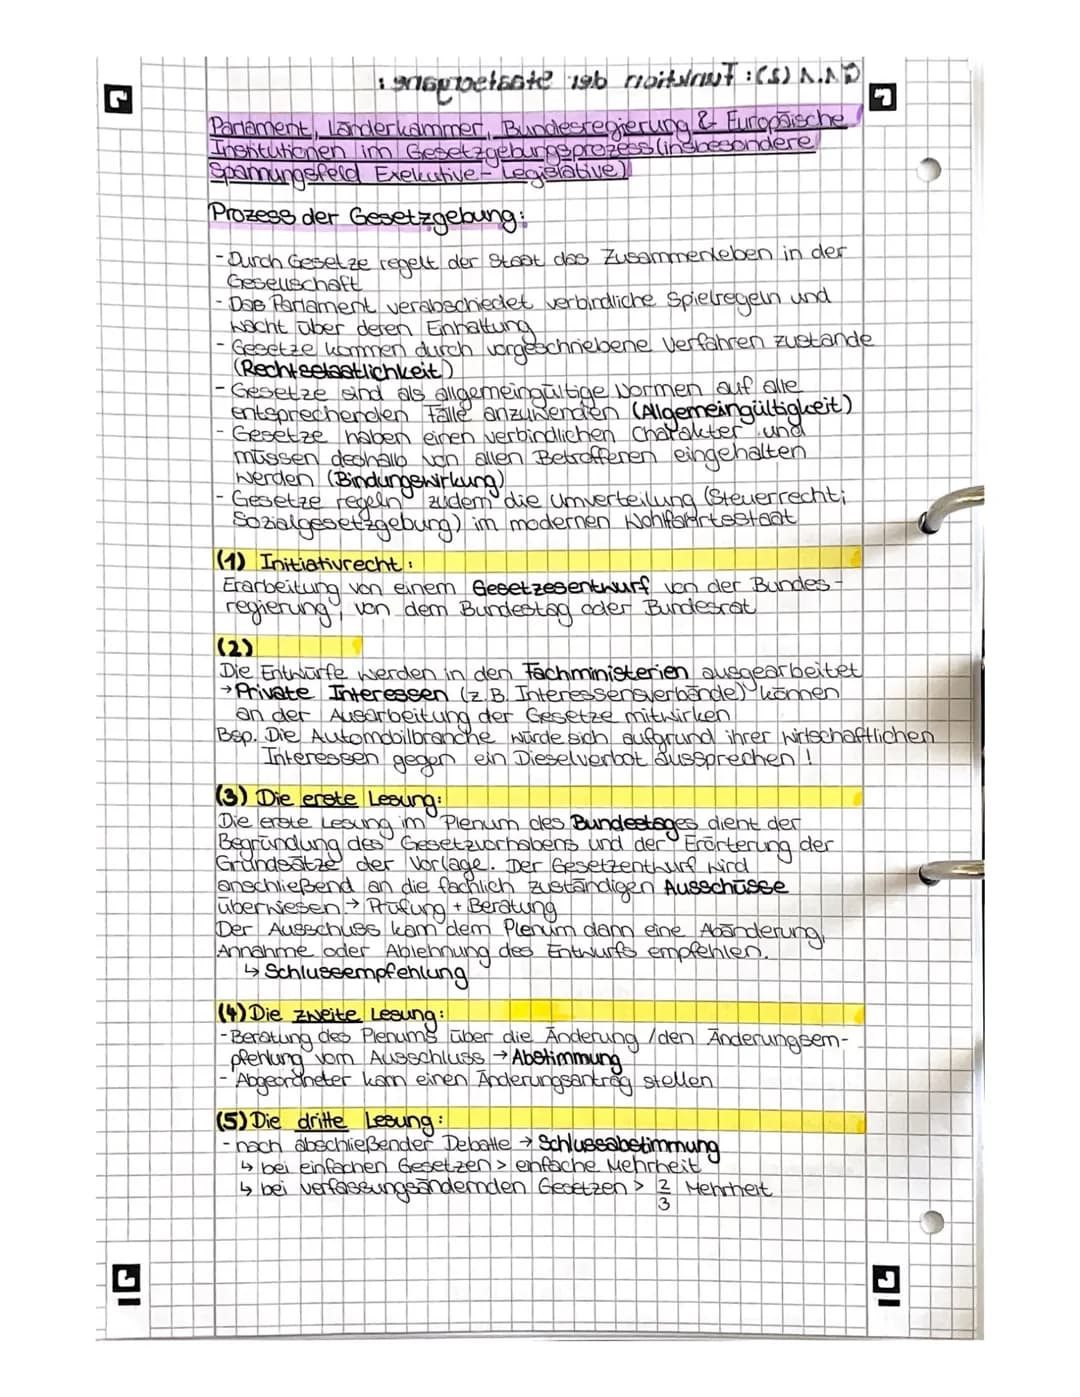 GA 1.1 (5): Funktion der Staatsorgane :
Parlament, Länderkammer, Bundesregierung & Europäische
Institutionen im Gesetzgebungsprozess (insbesondere
Spannungsfeld Exekutive- Legislative)
Prozess der Gesetzgebung:
- Durch Gesetze regelt der Staat das Zusammenleben in der
Gesellschaft
- Das Parlament verabschiedet verbindliche Spielregeln und
wacht über deren Einhaltung
- Gesetze kommen durch vorgeschriebene Verfahren zustande
(Rechtsstaatlichkeit)
- Gesetze sind als allgemeingültige Normen auf alle
entsprechenden Fälle anzuwenden (Allgemeingültigkeit)
- Gesetze haben einen verbindlichen Charakter und
müssen deshalb von allen Betroffenen eingehalten
werden (Bindungswirkung)
- Gesetze regeln zudem die Umverteilung (Steuerrecht;
Sozialgesetzgebung) im modernen Wohlfahrtsstaat
(1) Initiativrecht:
Erarbeitung von einem Gesetzesentwurf von der Bundes-
regierung, von dem Bundestag oder Bundesrat
(2)
Die Entwürfe werden in den Fachministerien ausgearbeitet
→ Private Interessen (z.B. Interessensverbände) können
an der Ausarbeitung der Gesetze mitwirken
Bsp. Die Automobilbranche würde sich aufgrund ihrer wirtschaftlichen
Interessen gegen ein Dieselverbot aussprechen !
(3) Die erste Lesung:
Die erste Lesung im Plenum des Bundestages dient der
Begründung des Gesetzvorhabens und der Erörterung der
Grundsätze der Vorlage. Der Gesetzentwurf wird
anschließend an die fachlich zuständigen Ausschüsse
überwiesen → Prüfung + Beratung
Der Ausschuss kann dem Plenum dann eine Abänderung,
Annahme oder Ablehnung des Entwurfs empfehlen.
↳ Schlussempfehlung
(4) Die zweite Lesung:
- Beratung des Plenums über die Änderung / den Änderungsem-
pfehlung vom Ausschluss → Abstimmung
- Abgeordneter kann einen Änderungsantrag stellen
(5) Die dritte Lesung:
- nach abschließender Debatte → Schlussabstimmung
↳ bei einfachen Gesetzen > einfache Mehrheit
↳ bei verfassungsändernden Gesetzen > 2/3 Mehrheit